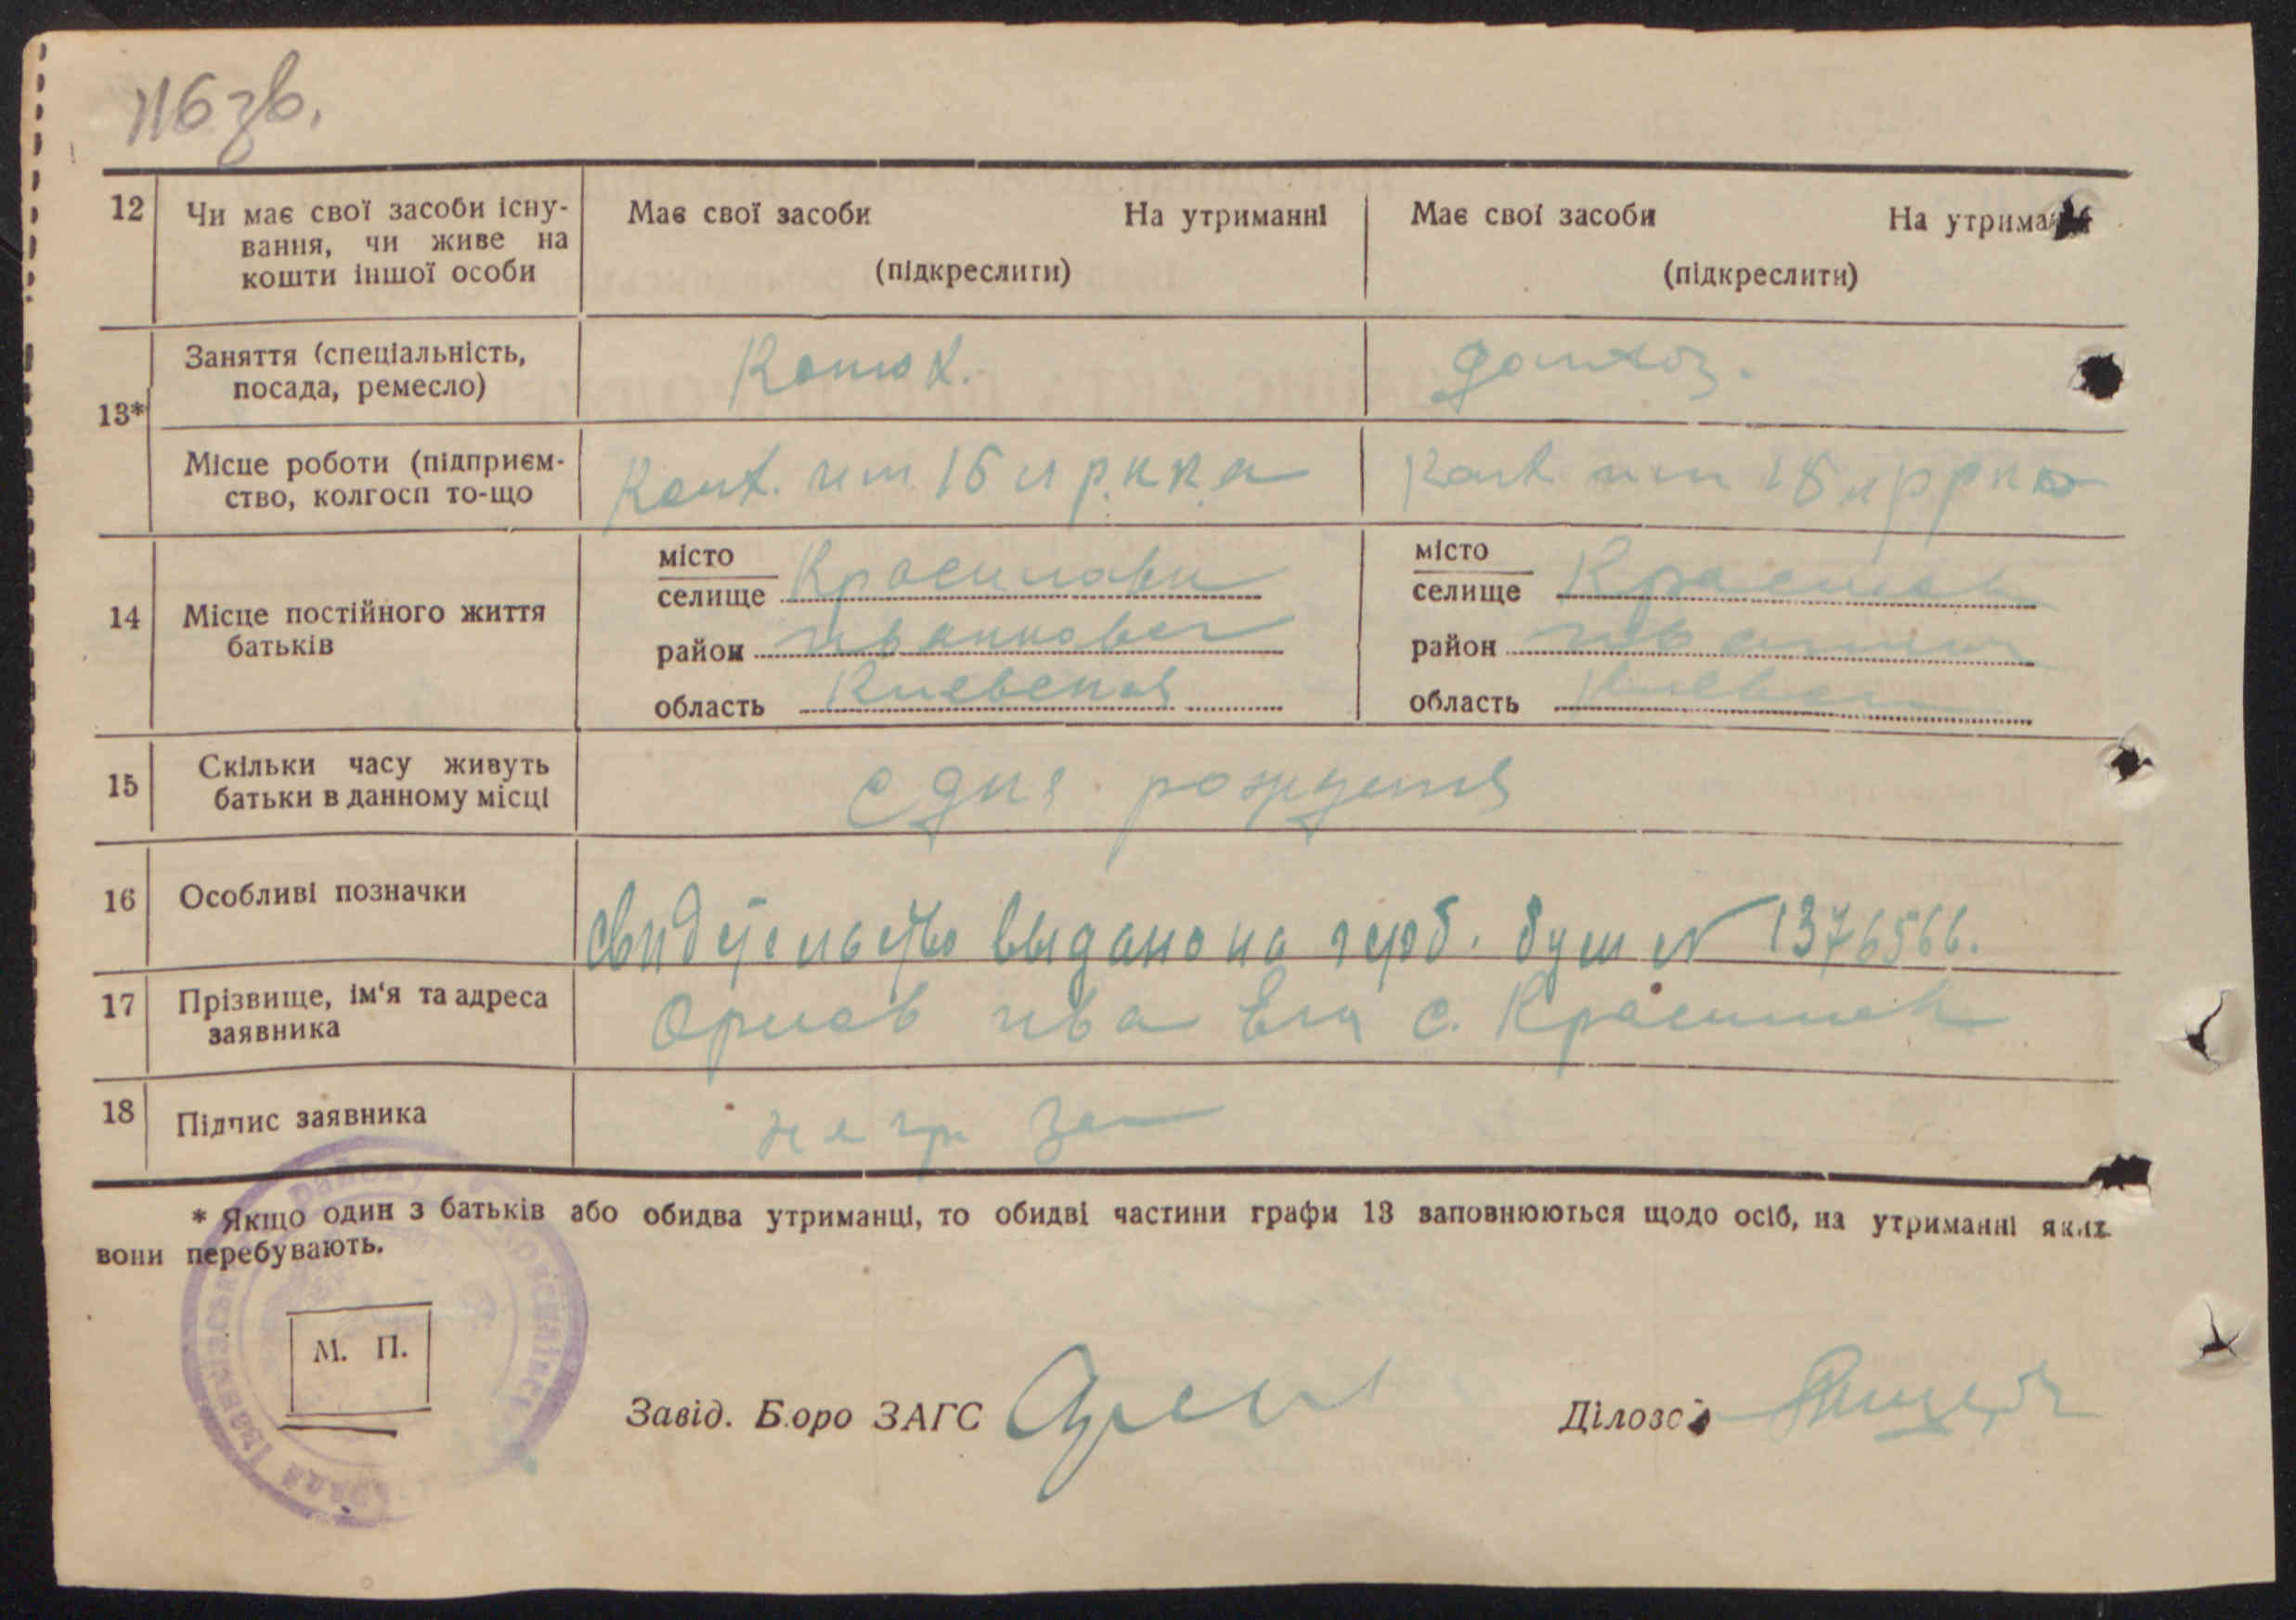 116 зв.
12 Чи має свої засоби існу- Має свої засоби На утриманні Має свої засоби На утриманні
вання, чи живе на
кошти іншої особи (підкреслити) (підкреслити)
Заняття (спеціальність, Конюх. домхоз.
посада, ремесло)
13*
Місце роботи (підприєм- Колх. им. 15 л р.к.к.а Колх им 15 л р р к к а
ство, колгосп то-що
місто місто
селище Красиловки селище Красилов
14 Місце постійного життя
батьків
район Иванковск район Иванков
область Киевская область Киевск
15 Скільки часу живуть с дня рождения
батьки в данному місці
16 Особливі позначки Свидетельство выдано на герб. бум № 1376566.
17 Прізвище, ім'я та адреса Орлов Ива с. Красилов
заявника
18 Підпис заявника не гр
* Якщо один з батьків або обидва утриманці, то обидві частини графи 13 заповнюються щодо осіб, на утриманні яких
вони перебувають.
М. П.
Завід. Бюро ЗАГС Діловод